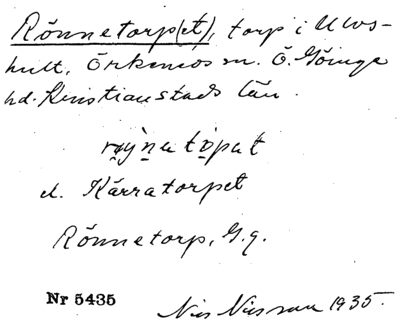 Rönnetorp(et), torp i Ulvs-
hult, Örkeneds sn. Ö. Göinge
hd. Kristianstads län.
el. Kärratorpet
Rönnetorp, G.g.
Nr 5435
Nils Nilsson 1935.